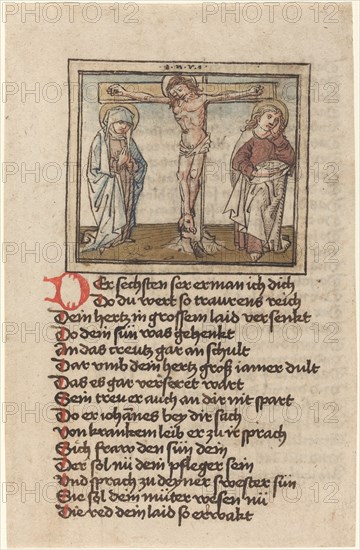 ·I·N·R·I·
Der sechsten ser erman ich dich
Do du wert so traurens reich
Dein hertz in grossem laid versenkt
Do dein sün was gehenkt
An das kreutz gar an schult
Dar vmb dein hertz groß iamer dult
Das es gar verseret wart
Sein treu er auch an dir nit spart
Do er iohānes bey dir sach
Von krankem leib er zu ir sprach
Sich fraw den sün dein
Der sol nū dein pfleger sein
Vnd sprach zu deyner swester sün
Sie sol dein müter wesen nü
Die red dein laid so erwakt